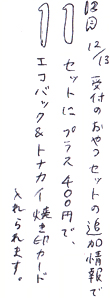 12/13 受付のおやつセットの追加情報で
セットにプラス400円で、
エコバック&トナカイ焼き印カード
入れられます。